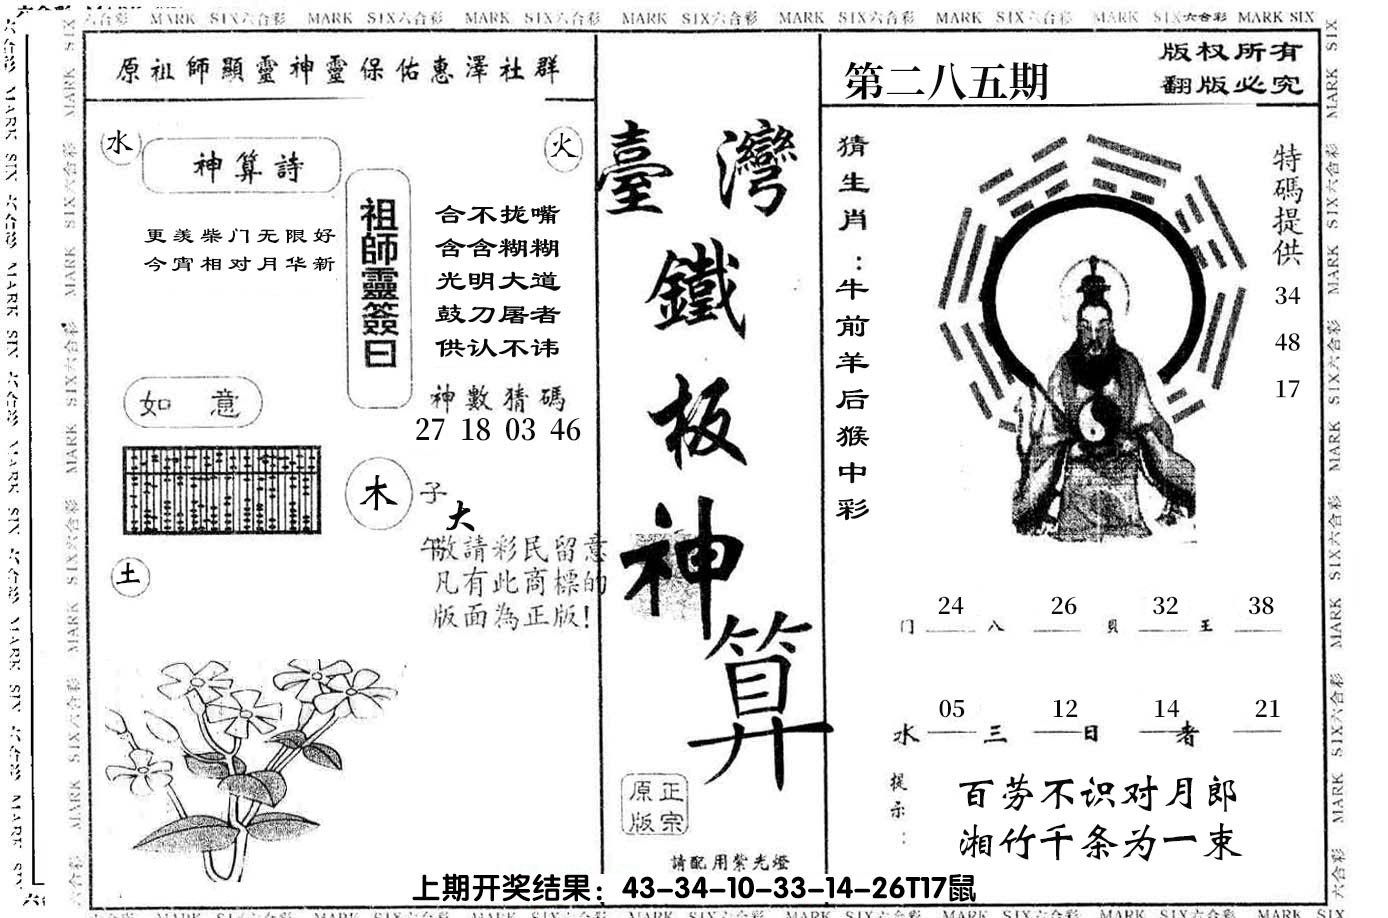 六合彩 MARK SIX六合彩 MARK SIX六合彩 MARK SIX六合彩 MARK SIX六合彩 MARK SIX六合彩 MARK SIX六合彩 MARK SIX六合彩 MARK SIX
原祖師顯靈神靈保佑惠澤社群
水
神算詩
火
更羡柴门无限好
今宵相对月华新
祖師靈簽曰
合不拢嘴
含含糊糊
光明大道
鼓刀屠者
供认不讳
神數猜碼
27 18 03 46
如意
木
子
大
午
敬請彩民留意
凡有此商標的
版面為正版!
土
臺灣
鐵
板
神
算
原正
版宗
請配用紫光燈
第二八五期
版权所有
翻版必究
猜生肖：牛前羊后猴中彩
特碼提供
34
48
17
24 26 32 38
门 八 貝 王
05 12 14 21
水 三 日 者
提示：
百劳不识对月郎
湘竹千条为一束
上期开奖结果：43-34-10-33-14-26T17鼠